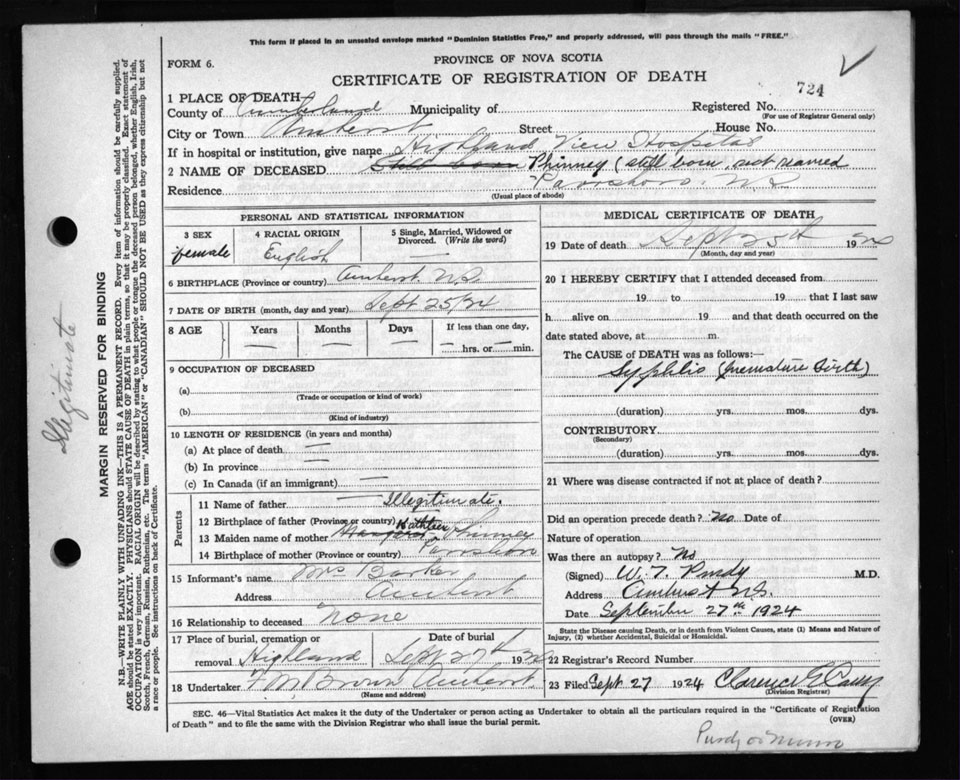 This form if placed in an unsealed envelope marked "Dominion Statistics Free," and properly addressed, will pass through the mails "FREE."
FORM 6.
PROVINCE OF NOVA SCOTIA
CERTIFICATE OF REGISTRATION OF DEATH
724
1 PLACE OF DEATH
County of Cumberland Municipality of Registered No.
(For use of Registrar General only)
City or Town Amherst Street House No.
If in hospital or institution, give name Highland View Hospital
2 NAME OF DECEASED Still born Phinney (still born, not named
Residence Parrsboro. N.S.
(Usual place of abode)
PERSONAL AND STATISTICAL INFORMATION
3 SEX 4 RACIAL ORIGIN 5 Single, Married, Widowed or Divorced. (Write the word)
female English —
6 BIRTHPLACE (Province or country) Amherst N.S.
7 DATE OF BIRTH (month, day and year) Sept 25/24
8 AGE Years Months Days If less than one day,
— — — hrs. or min.
9 OCCUPATION OF DECEASED
(a)
(Trade or occupation or kind of work)
(b)
(Kind of industry)
10 LENGTH OF RESIDENCE (in years and months)
(a) At place of death —
(b) In province —
(c) In Canada (if an immigrant) —
Parents
11 Name of father — Illegitimate.
12 Birthplace of father (Province or country)
13 Maiden name of mother Phinney
14 Birthplace of mother (Province or country) Parrsboro
15 Informant's name Mrs Barker
Address Amherst
16 Relationship to deceased None
17 Place of burial, cremation or removal Highland Date of burial Sept 27th 1924
18 Undertaker F M Brown Amherst
(Name and address)
MEDICAL CERTIFICATE OF DEATH
19 Date of death Sept 25th 1924
(Month, day and year)
20 I HEREBY CERTIFY that I attended deceased from
19 to 19 that I last saw
h alive on 19 and that death occurred on the
date stated above, at m.
The CAUSE OF DEATH was as follows:
Syphilis (premature birth)
(duration) yrs. mos. dys.
CONTRIBUTORY
(Secondary)
(duration) yrs. mos. dys.
21 Where was disease contracted if not at place of death?
Did an operation precede death? No Date of
Nature of operation
Was there an autopsy? No
(Signed) W. T. Purdy M.D.
Address Amherst N.S.
Date September 27th 1924
State the Disease causing Death, or in death from Violent Causes, state (1) Means and Nature of
Injury, (2) whether Accidental, Suicidal or Homicidal.
22 Registrar's Record Number
23 Filed Sept 27 1924 Clarence E Casey
(Division Registrar)
SEC. 46—Vital Statistics Act makes it the duty of the Undertaker or person acting as Undertaker to obtain all the particulars required in the "Certificate of Registration
of Death" and to file the same with the Division Registrar who shall issue the burial permit.
(OVER)
Purdy or Munro
Illegitimate
MARGIN RESERVED FOR BINDING
N.B.—WRITE PLAINLY WITH UNFADING INK—THIS IS A PERMANENT RECORD. Every item of information should be carefully supplied.
AGE should be stated EXACTLY. PHYSICIANS should STATE CAUSE OF DEATH in plain terms, so that it may be properly classified. Exact statement of
OCCUPATION is very important. RACIAL ORIGIN will be described by stating to what people or tongue the deceased person belonged, whether English, Irish,
Scotch, French, German, Russian, Ruthenian, etc. The terms "AMERICAN" or "CANADIAN" SHOULD NOT BE USED as they express citizenship but not
a race or people. See instructions on back of Certificate.